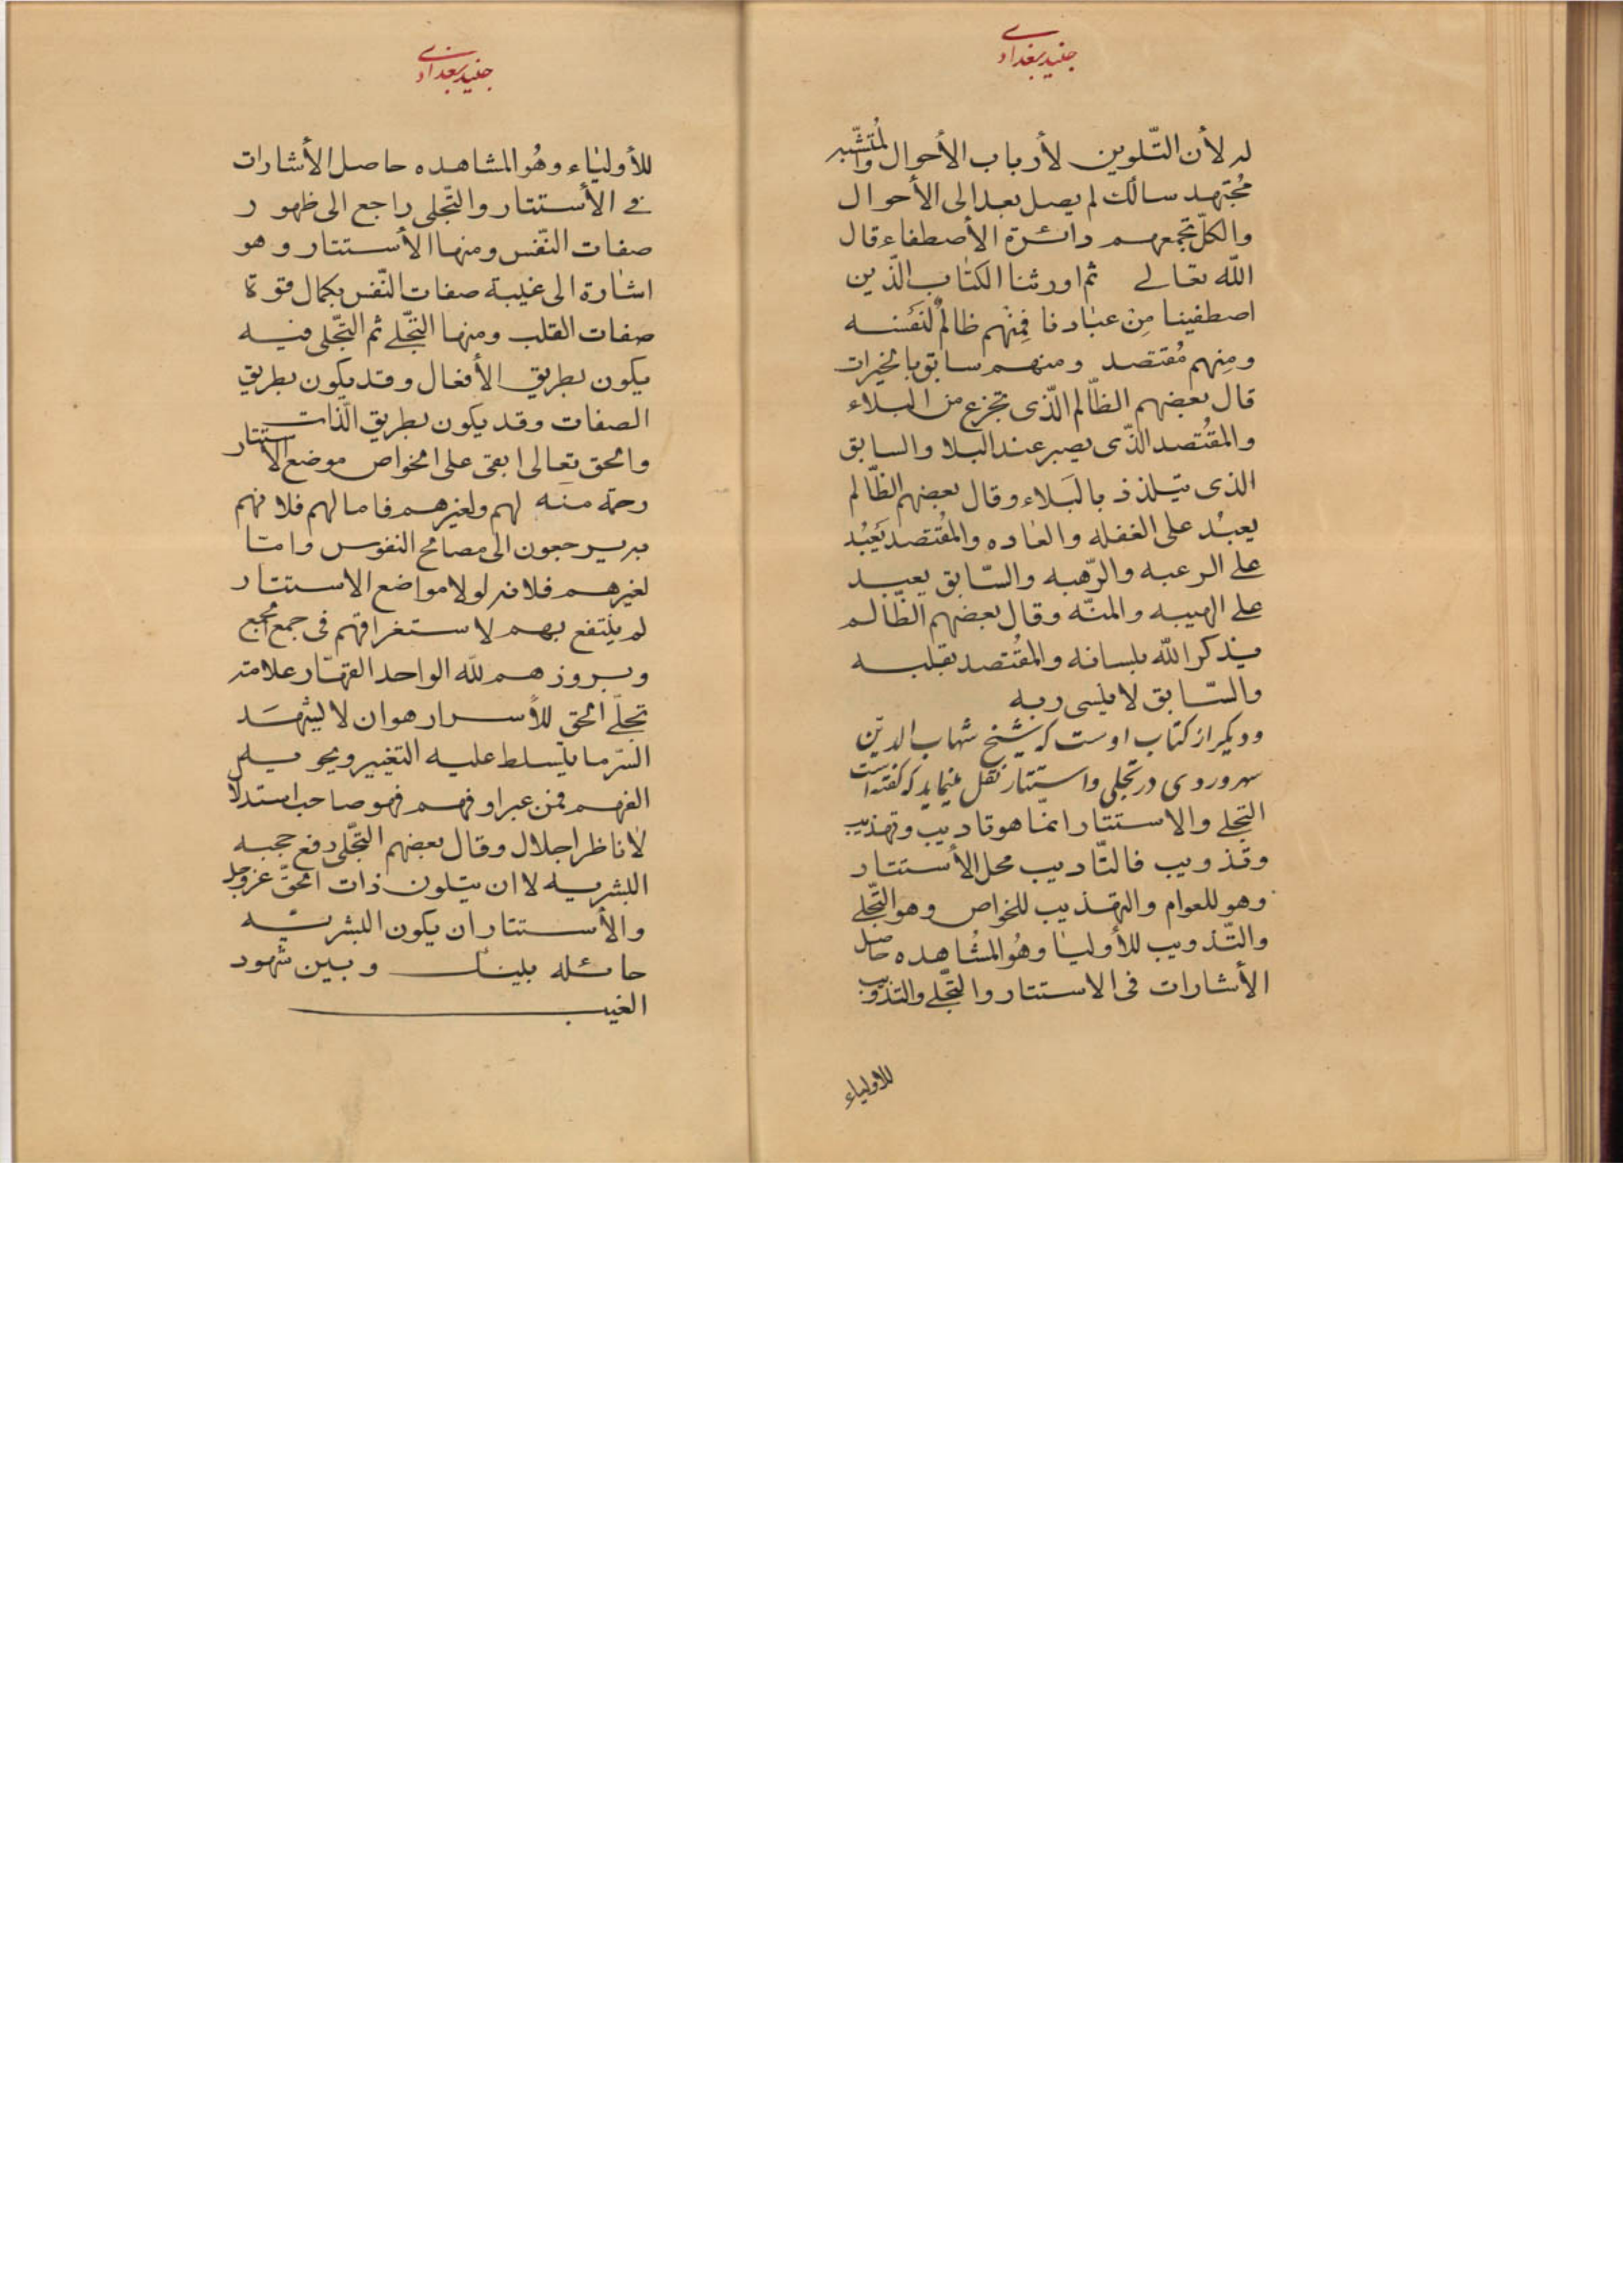 جنید بغدادی
له لأن التّلوین لأرباب الأحوال والمُتشّبه
مُجتهد سالک لم یصل بعد الی الأحوال
والکلّ تجمعهم دائرة الأصطفاء قال
اللّه تعالی ثم اورثنا الکتاب الّذین
اصطفینا مِن عبادنا فمِنْهم ظالمٌ لنَفْسه
ومِنهم مُقتصد ومنهم سابق بالخیرات
قال بعضهم الظّالم الّذی یجزع من البلاء
والمقُتصد الذّی یصبر عند البلا والسابق
الذی یتلذذ بالبَلاء وقال بعضهم الظّالم
یعبُد علی الغفله والعاده والمقُتصد یَعَبُد
علی الرعبه والرّهبه والسّابق یعبد
علی الهیبه والمنّه وقال بعضهم الظّالم
یذکر اللّه بلسانه والمقُتصد بقلبه
والسّابق لا ینسی ربه
ودیکر از کتاب اوست که شیخ شهاب الدیّن
سهروردی در تجلی واستتار نقل مینماید که کفته است
التجلی والاستتار انمّا هو تادیب وتهذیب
وتذویب فالتّادیب محل الأستتار
وهو للعوام والتهذیب للخواص وهو التّجلی
والتّذویب للأولیا وهُو المشُاهده حاصل
الأشارات فی الاستتار والتّجلی والتذویب
للاولیاء
جنید بغدادی
للأولیاء وهُو المشاهده حاصل الأشارات
فی الأستتار والتّجلی راجع الی ظهور
صفات النّفس ومنها الأستتار وهو
اشارة الی غیبة صفات النّفس بکمال قوة
صفات القلب ومنها التّجلی ثم التّجلی فیه
یکون بطریق الأفعال وقد یکون بطریق
الصفات وقد یکون بطریق الّذات
والحق تعالی ابقی علی الخواص موضع الاستتار
رحمة منه لهم ولغیرهم فاما لهم فلانهم
به یرجعون الی مصالح النفوس وامّا
لغیرهم فلانه لولا مواضع الاستتار
لم ینتفع بهم لاستغراقهم فی جمع الجمع
وبروزهم للّه الواحد القهّار علامته
تجلّی الحق للأسرار هو ان لا یشهَد
السّر ما یتسلط علیه التغییر ویحویه
الفهم فمن عبر او فهم فهو صاحب استدلال
لاناظر اجلال وقال بعضهم التّجلّی رفع حجبه
البشریه لا ان یتلون ذات الحقّ عزوجل
والأستتار ان یکون البشریّه
حائله بینک وبین شهود
الغیب